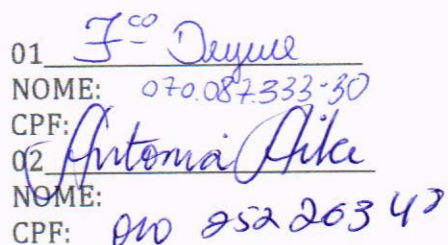 01 Fco Deyme
NOME: 070.087.333-30
CPF:
02 Antonia Aila
NOME:
CPF: 010 252 263 48